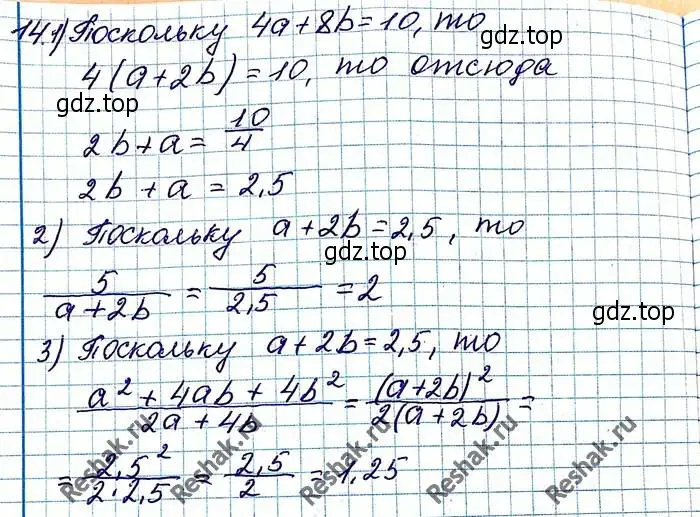 14.1) Поскольку 4a+8b=10, то
gdz.top
4(a+2b)=10, то отсюда
gdz.top
2b+a= 10/4
2b+a=2,5
2) Поскольку a+2b=2,5, то
gdz.top
5/(a+2b) = 5/2,5 = 2
gdz.top
3) Поскольку a+2b=2,5, то
(a²+4ab+4b²)/(2a+4b) = (a+2b)²/(2(a+2b)) =
= 2,5²/(2·2,5) = 2,5/2 = 1,25
Reshak.ru
Reshak.ru
Reshak.ru
Reshak.ru